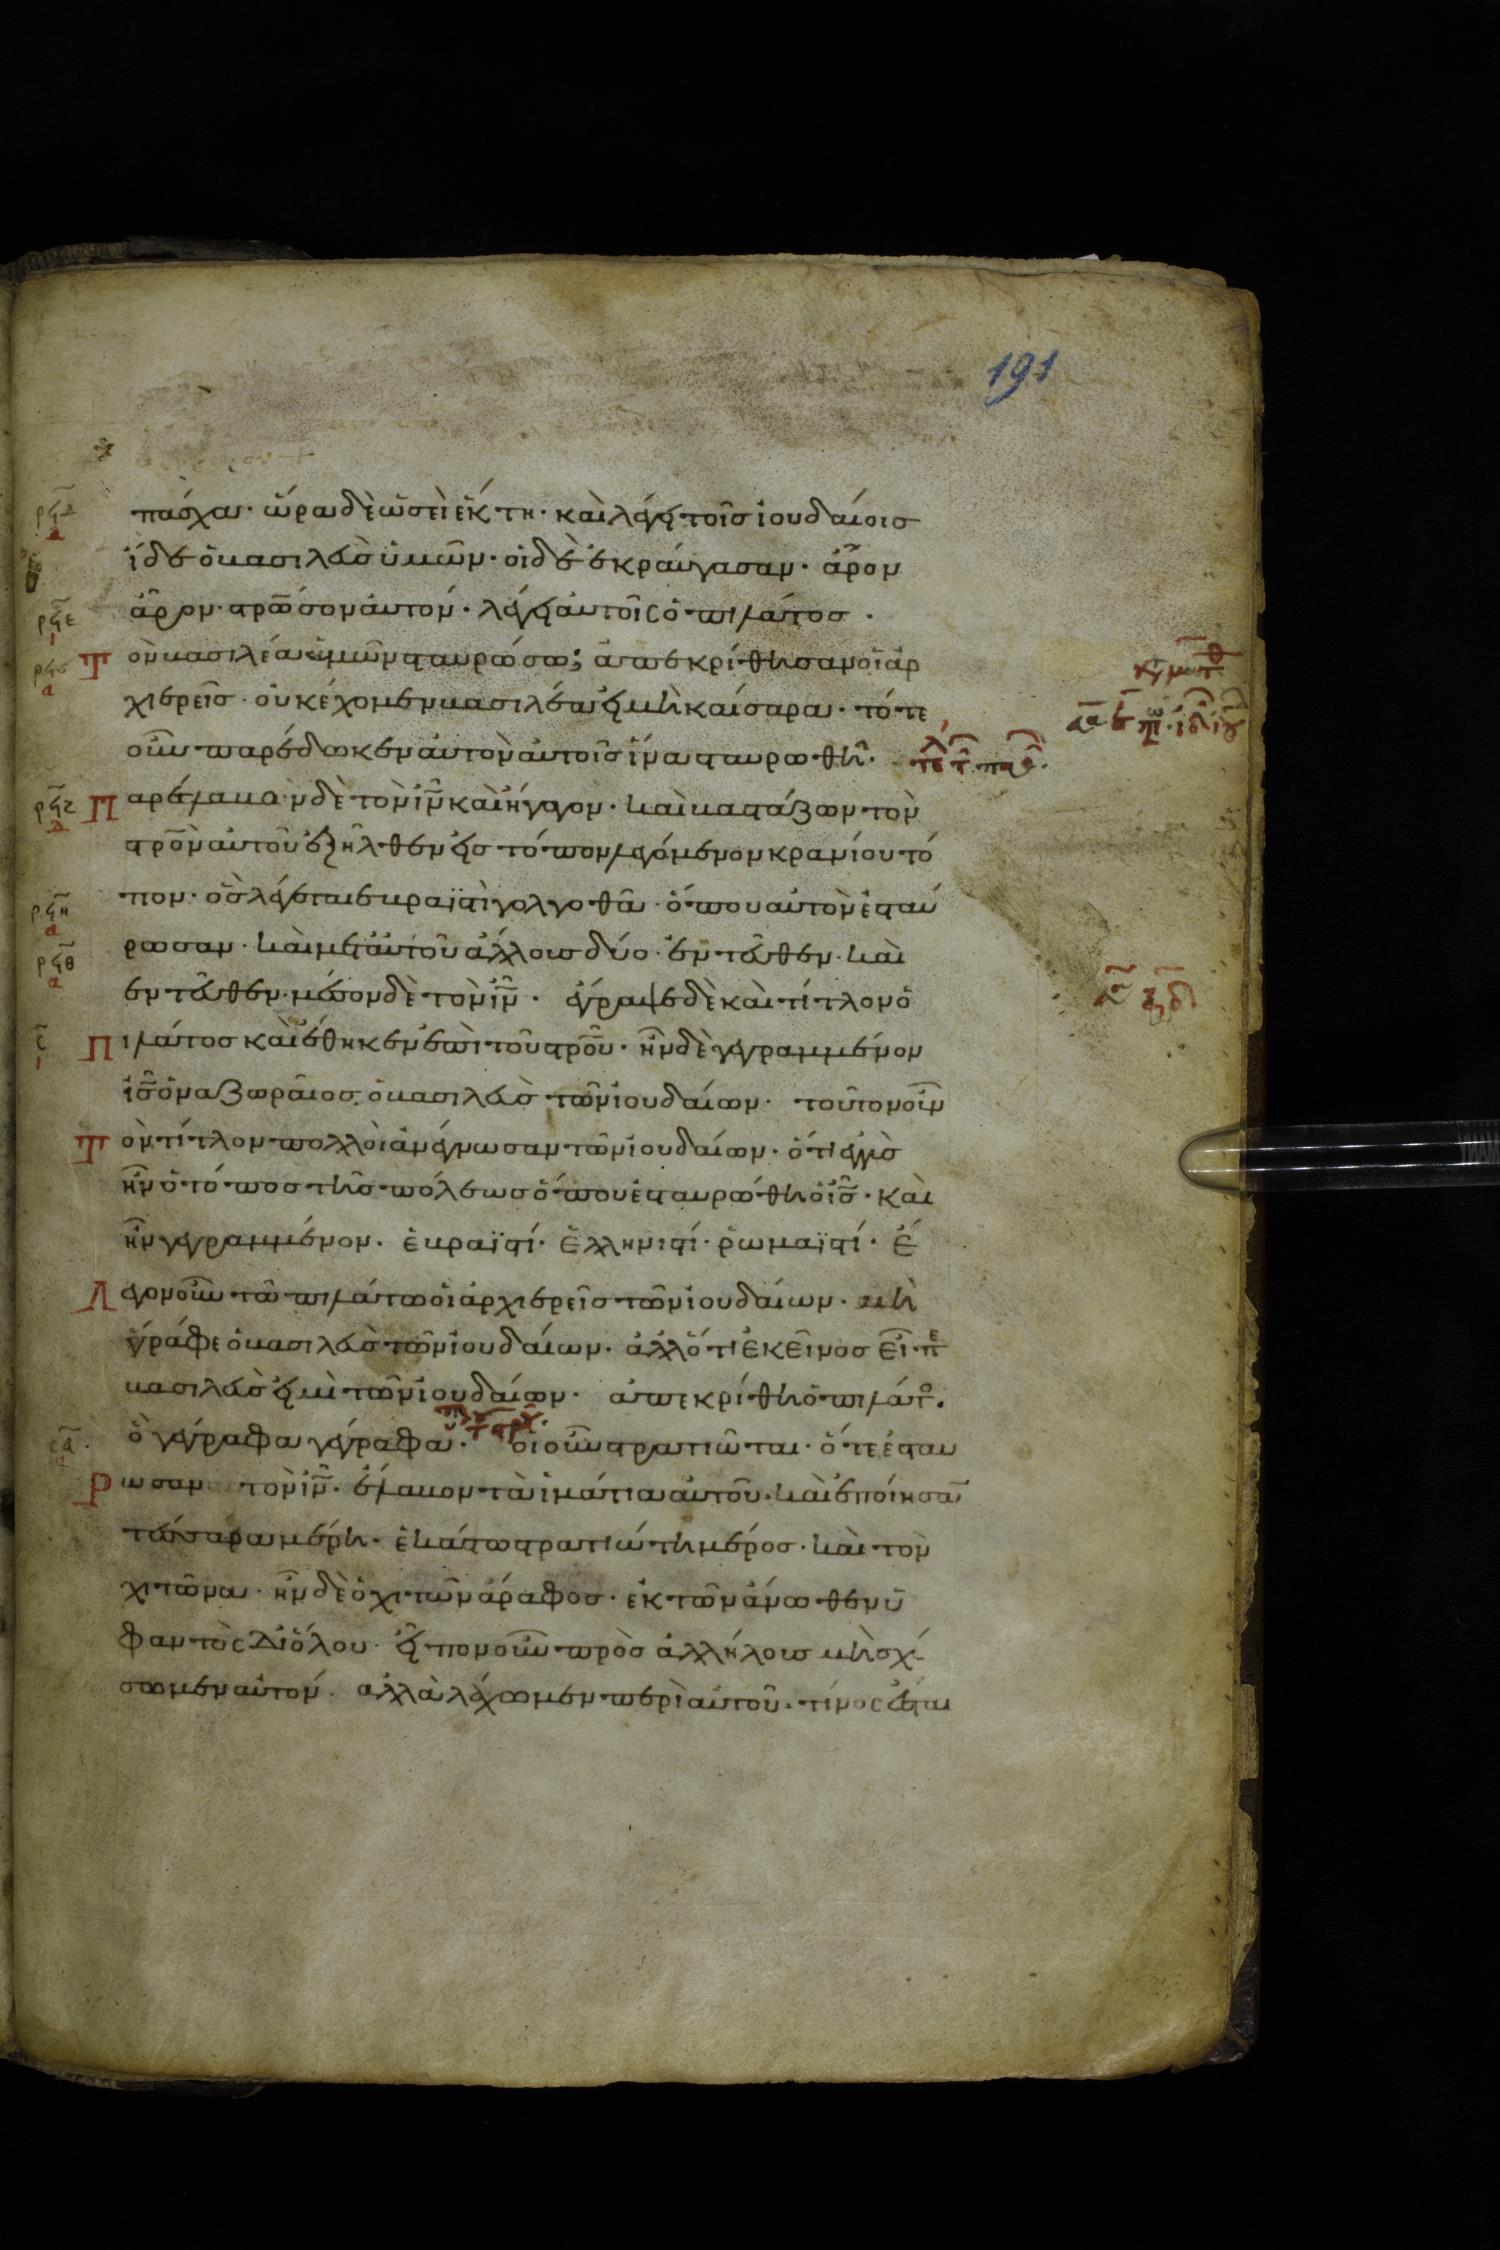 191
πάσχα· ὥρα δὲ ὡσεὶ ἕκτη· καὶ λέγει τοῖς ἰουδαίοις
ἴδε ὁ βασιλεὺς ὑμῶν· οἱ δὲ ἐκραύγασαν· ἆρον
ἆρον· στρ̅ωσον αὐτόν· λέγει αὐτοῖς ὁ πιλάτος ·
Τὸν βασιλέα ὑμῶν σταυρώσω; ἀπεκρίθησαν οἱ ἀρ
χιερεῖς· οὐκ ἔχομεν βασιλέα εἰ μὴ καίσαρα· τότε
οὖν παρέδωκεν αὐτὸν αὐτοῖς ἵνα σταυρωθῆ·
Παρέλαβον δὲ τὸν ι̅ν̅ καὶ ἤγαγον· καὶ βαστάζων τὸν
στρ̅ὸν αὐτοῦ ἐξῆλθεν εἰς τόπον λεγόμενον κρανίου τό
πον· ὃς λέγεται ἑβραϊστὶ γολγοθᾶ· ὅπου αὐτὸν ἐσταύ
ρωσαν· καὶ μετ᾽ αὐτοῦ ἄλλους δύο· ἐντεῦθεν καὶ
ἐντεῦθεν· μέσον δὲ τὸν ι̅ν̅· ἔγραψε δὲ καὶ τίτλον ὁ
Πιλάτος καὶ ἔθηκεν ἐπὶ τοῦ στρ̅οῦ· ἦν δὲ γεγραμμένον
ι̅ς̅ ὁ ναζωραῖος ὁ βασιλεὺς τῶν ἰουδαίων· τοῦτον οὖν
Τὸν τίτλον πολλοὶ ἀνέγνωσαν τῶν ἰουδαίων· ὅτι ἐγγὺς
ἦν ὁ τόπος τῆς πόλεως ὅπου ἐσταυρώθη ὁ ι̅ς̅· καὶ
ἦν γεγραμμένον· ἑβραϊστί· ἑλληνιστί· ῥωμαϊστί· ἔ
Λεγον οὖν τῶ πιλάτω οἱ ἀρχιερεῖς τῶν ἰουδαίων· μὴ
γράφε ὁ βασιλεὺς τῶν ἰουδαίων· ἀλλ᾽ ὅτι ἐκεῖνος εἶπε
βασιλεὺς εἰμὶ τῶν ἰουδαίων· ἀπεκρίθη ὁ πιλάτο·
ὃ γέγραφα γέγραφα· οἱ οὖν στρατιῶται· ὅτε ἐσταυ
Ρωσαν τὸν ι̅ν̅· ἔλαβον τὰ ἱμάτια αὐτοῦ· καὶ ἐποίησα̅
τέσσαρα μέρη· ἑκάστω στρατιώτη μέρος· καὶ τὸν
χιτῶνα· ἦν δὲ ὁ χιτὼν ἄραφος· ἐκ τῶν ἄνωθεν ὑ
φαντὸς δι᾽ ὅλου· εἶπον οὖν πρὸς ἀλλήλους μὴ σχί
σωμεν αὐτόν· ἀλλὰ λάχωμεν περὶ αὐτοῦ· τίνος ἔσται